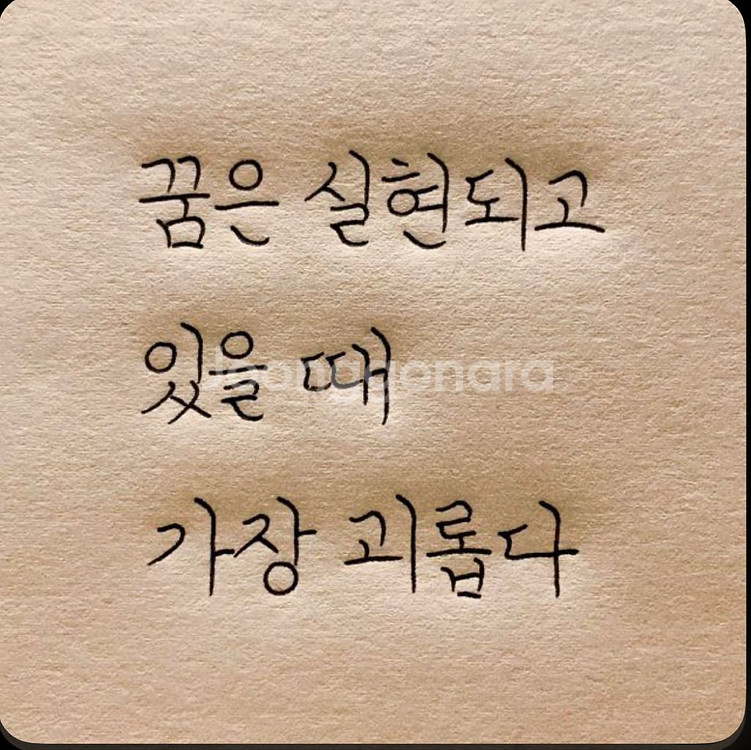 꿈은 실현되고
있을 때
Joonggonara
가장 괴롭다